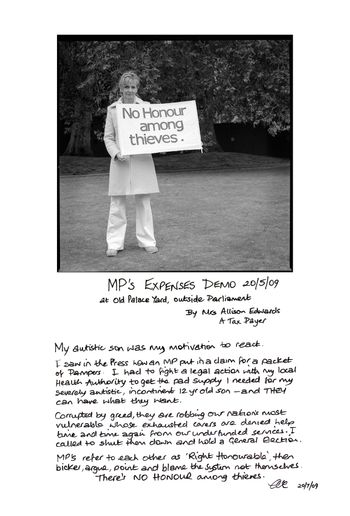 No Honour
among
thieves.
MP's Expenses Demo 20/5/09
at Old Palace Yard, outside Parliament
By Mrs Allison Edwards
A Tax Payer
My autistic son was my motivation to react.
I saw in the Press how an MP put in a claim for a packet
of Pampers. I had to fight a legal action with my local
Health Authority to get the pad supply I needed for my
severely autistic, incontinent 12 yr old son – and THEY
can have what they want.
Corrupted by greed, they are robbing our nation's most
vulnerable whose exhausted carers are denied help
time and time again from our underfunded services. I
called to shut them down and hold a General Election.
MP's refer to each other as 'Right Honourable', then
bicker, argue, point and blame the system not themselves.
There's NO HONOUR among thieves.
20/7/09